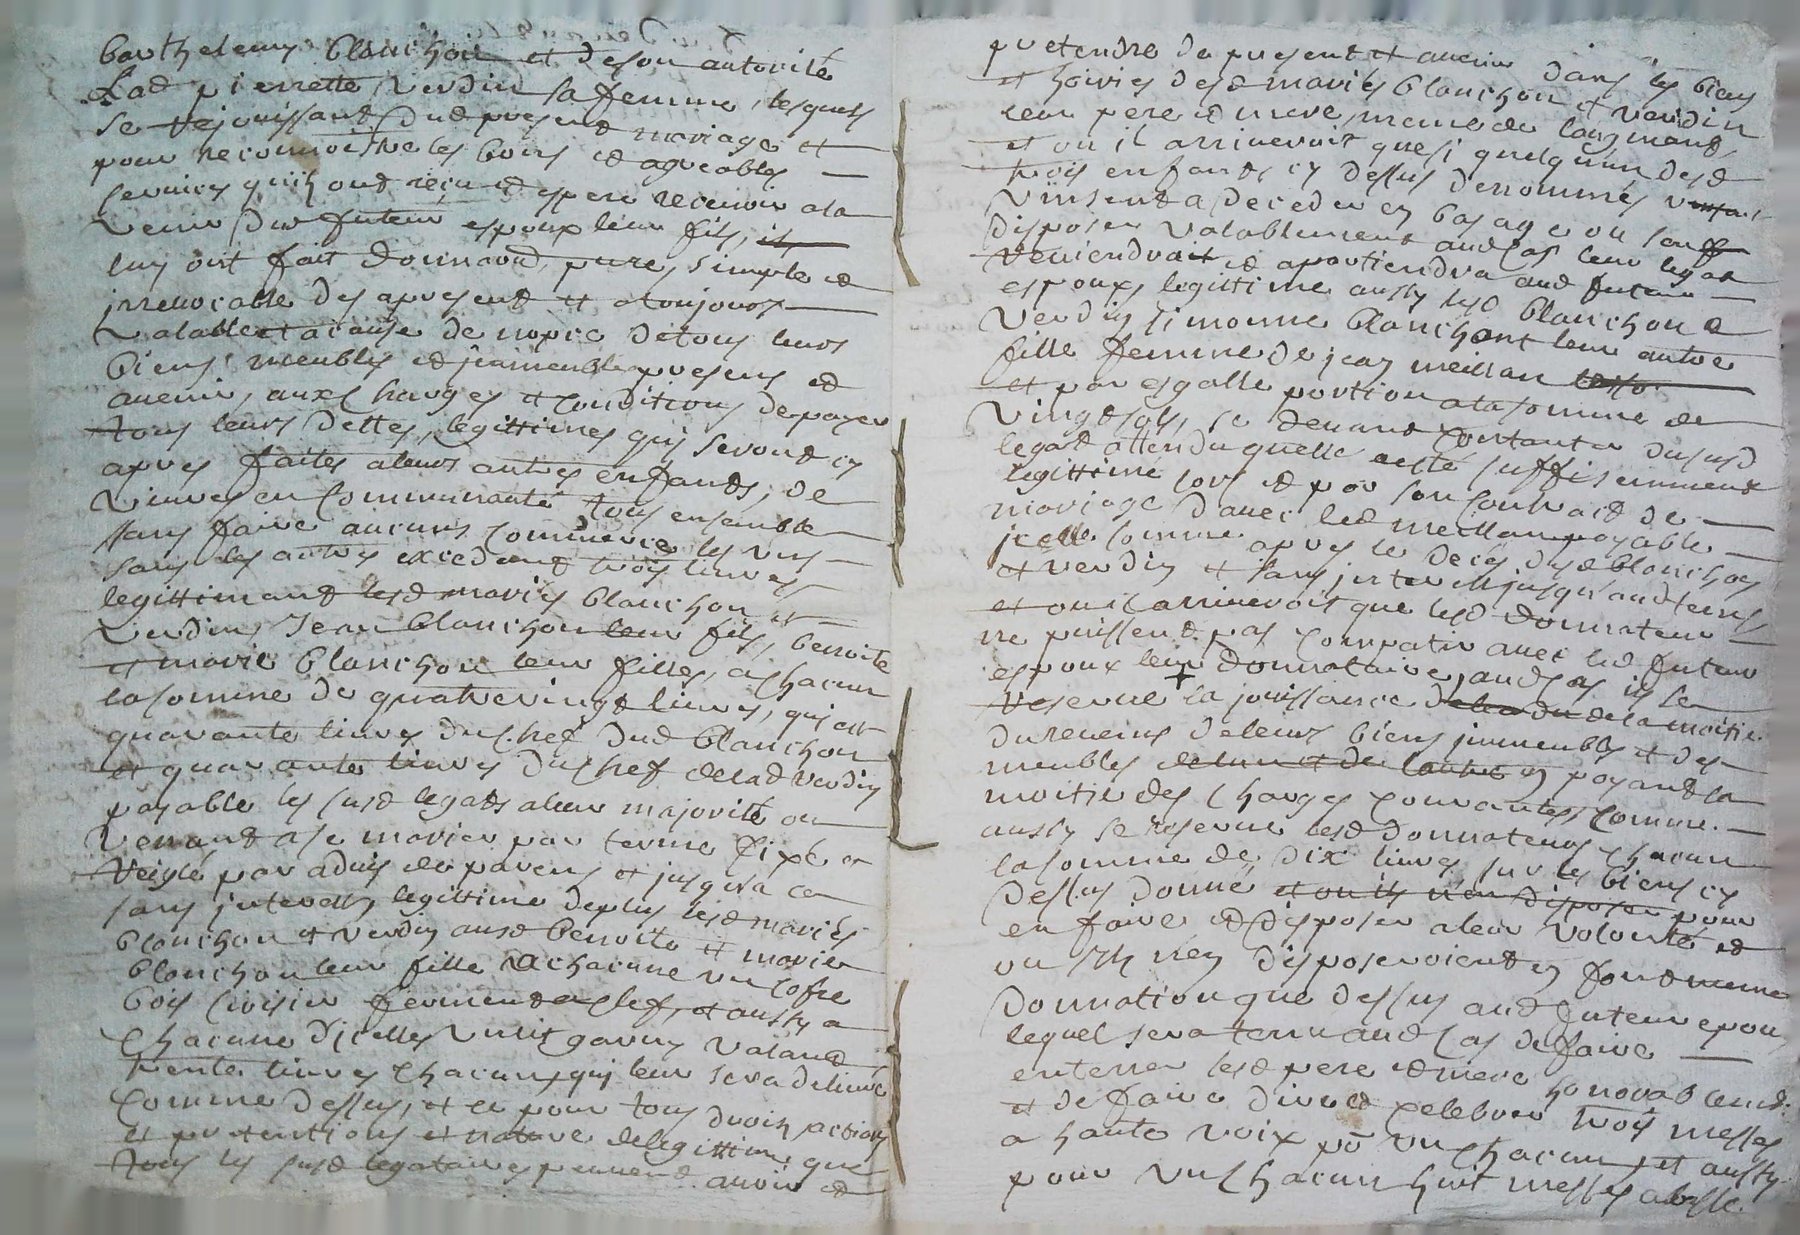 barthelemy blanchon et deson autorité
Lad pierrette verdin sa femme, lesquels
se rejouissant dud present mariage et
pour reconnoistre les bons et agreables
services quils ont reçu et espere recevoir ala
venir dud futeur espoux leur fils, ils
luy ont fait donnaōn, pure, simple et
irrevocable des apresent et atoujours
valable et acause de nopce detous leurs
biens meubles et jmmeubles presens et
avenir, aux charges et conditions depayer
tous leurs dettes, legittimes qui seront cy
apres faites aleurs autres enfants, de
vivres en communauté tous ensemble
sans faire aucuns commerce les uns
sans les autres excedant trois livres
legittimant lesd mariés blanchon et
verdin, Jean blanchon leur fils, benoite
et marie blanchon leur filles, achacun
lasomme de quatrevingt livres, qui est
quarante livres du chef dud blanchon
et quarante livres du chef delad verdin
payable les susd legats aleur majorité ou
venant a se marier par terme fixé et
reiglé par advis de parens et jusqu'a ce
sans jnterests legittime deplus lesd mariés
blanchon et verdin ausd benoite et marie
blanchon leur fille achacune un cofre
bois cerisier fermant aclef, et aussy a
chacune dicelles un lit garny valant
trente livres chacun, qui leur sera delivré
comme dessus, et ce pour tous droits, actions
et pretentions et nature delegittime que
tous les susd legataires peuvent avoir et
pretendre de present et avenir dans les biens
et hoiries desd mariés blanchon et verdin
leur pere et mere, meme de laugment,
et ou il arriveroit que si quelqu'un desd
trois enfants cy dessus denommés
vinsent a deceder en bas age ou sans
disposer valablement audcas leur legat
reviendrait et apartiendra aud futeur
espoux, legittime aussy lesd blanchon et
verdin, simonne blanchont leur autre
fille femme de jean meillan
et par esgalle portion ala somme de
vingt sols, se devant contanter dususd
legat attendu quelle aesté suffisemment
legittimé lors et par son contract de
mariage d'avec led meillan payable
jcelle somme apres le deces desd blanchon
et verdin et sans jnterest jusqu'aud tems
et ou il arriveroit que lesd donnateur
ne puissent pas compatir avec led futeur
espoux leur donnattaire, audcas ils se
reserve la jouissance dela du dela moitie
du revenus deleurs biens jmmeubles et des
meubles delun et de lautre en payant la
moitie des charges courantes, comme
aussy se reserve lesd donnateurs chacun
la somme de dix livres sur les biens cy
dessus donné et ou ils n'en disposer pour
en faire et disposer aleur volonté et
ou ils n'en disposeroient en font meme
donnation que dessus aud futeur epou
lequel sera tenu aud cas defaire
enterrer lesd pere et mere honorablemt
et de faire dire et celebrer trois messes
a haute voix pr un chacun, et aussy
pour un chacun huit messes abasse.